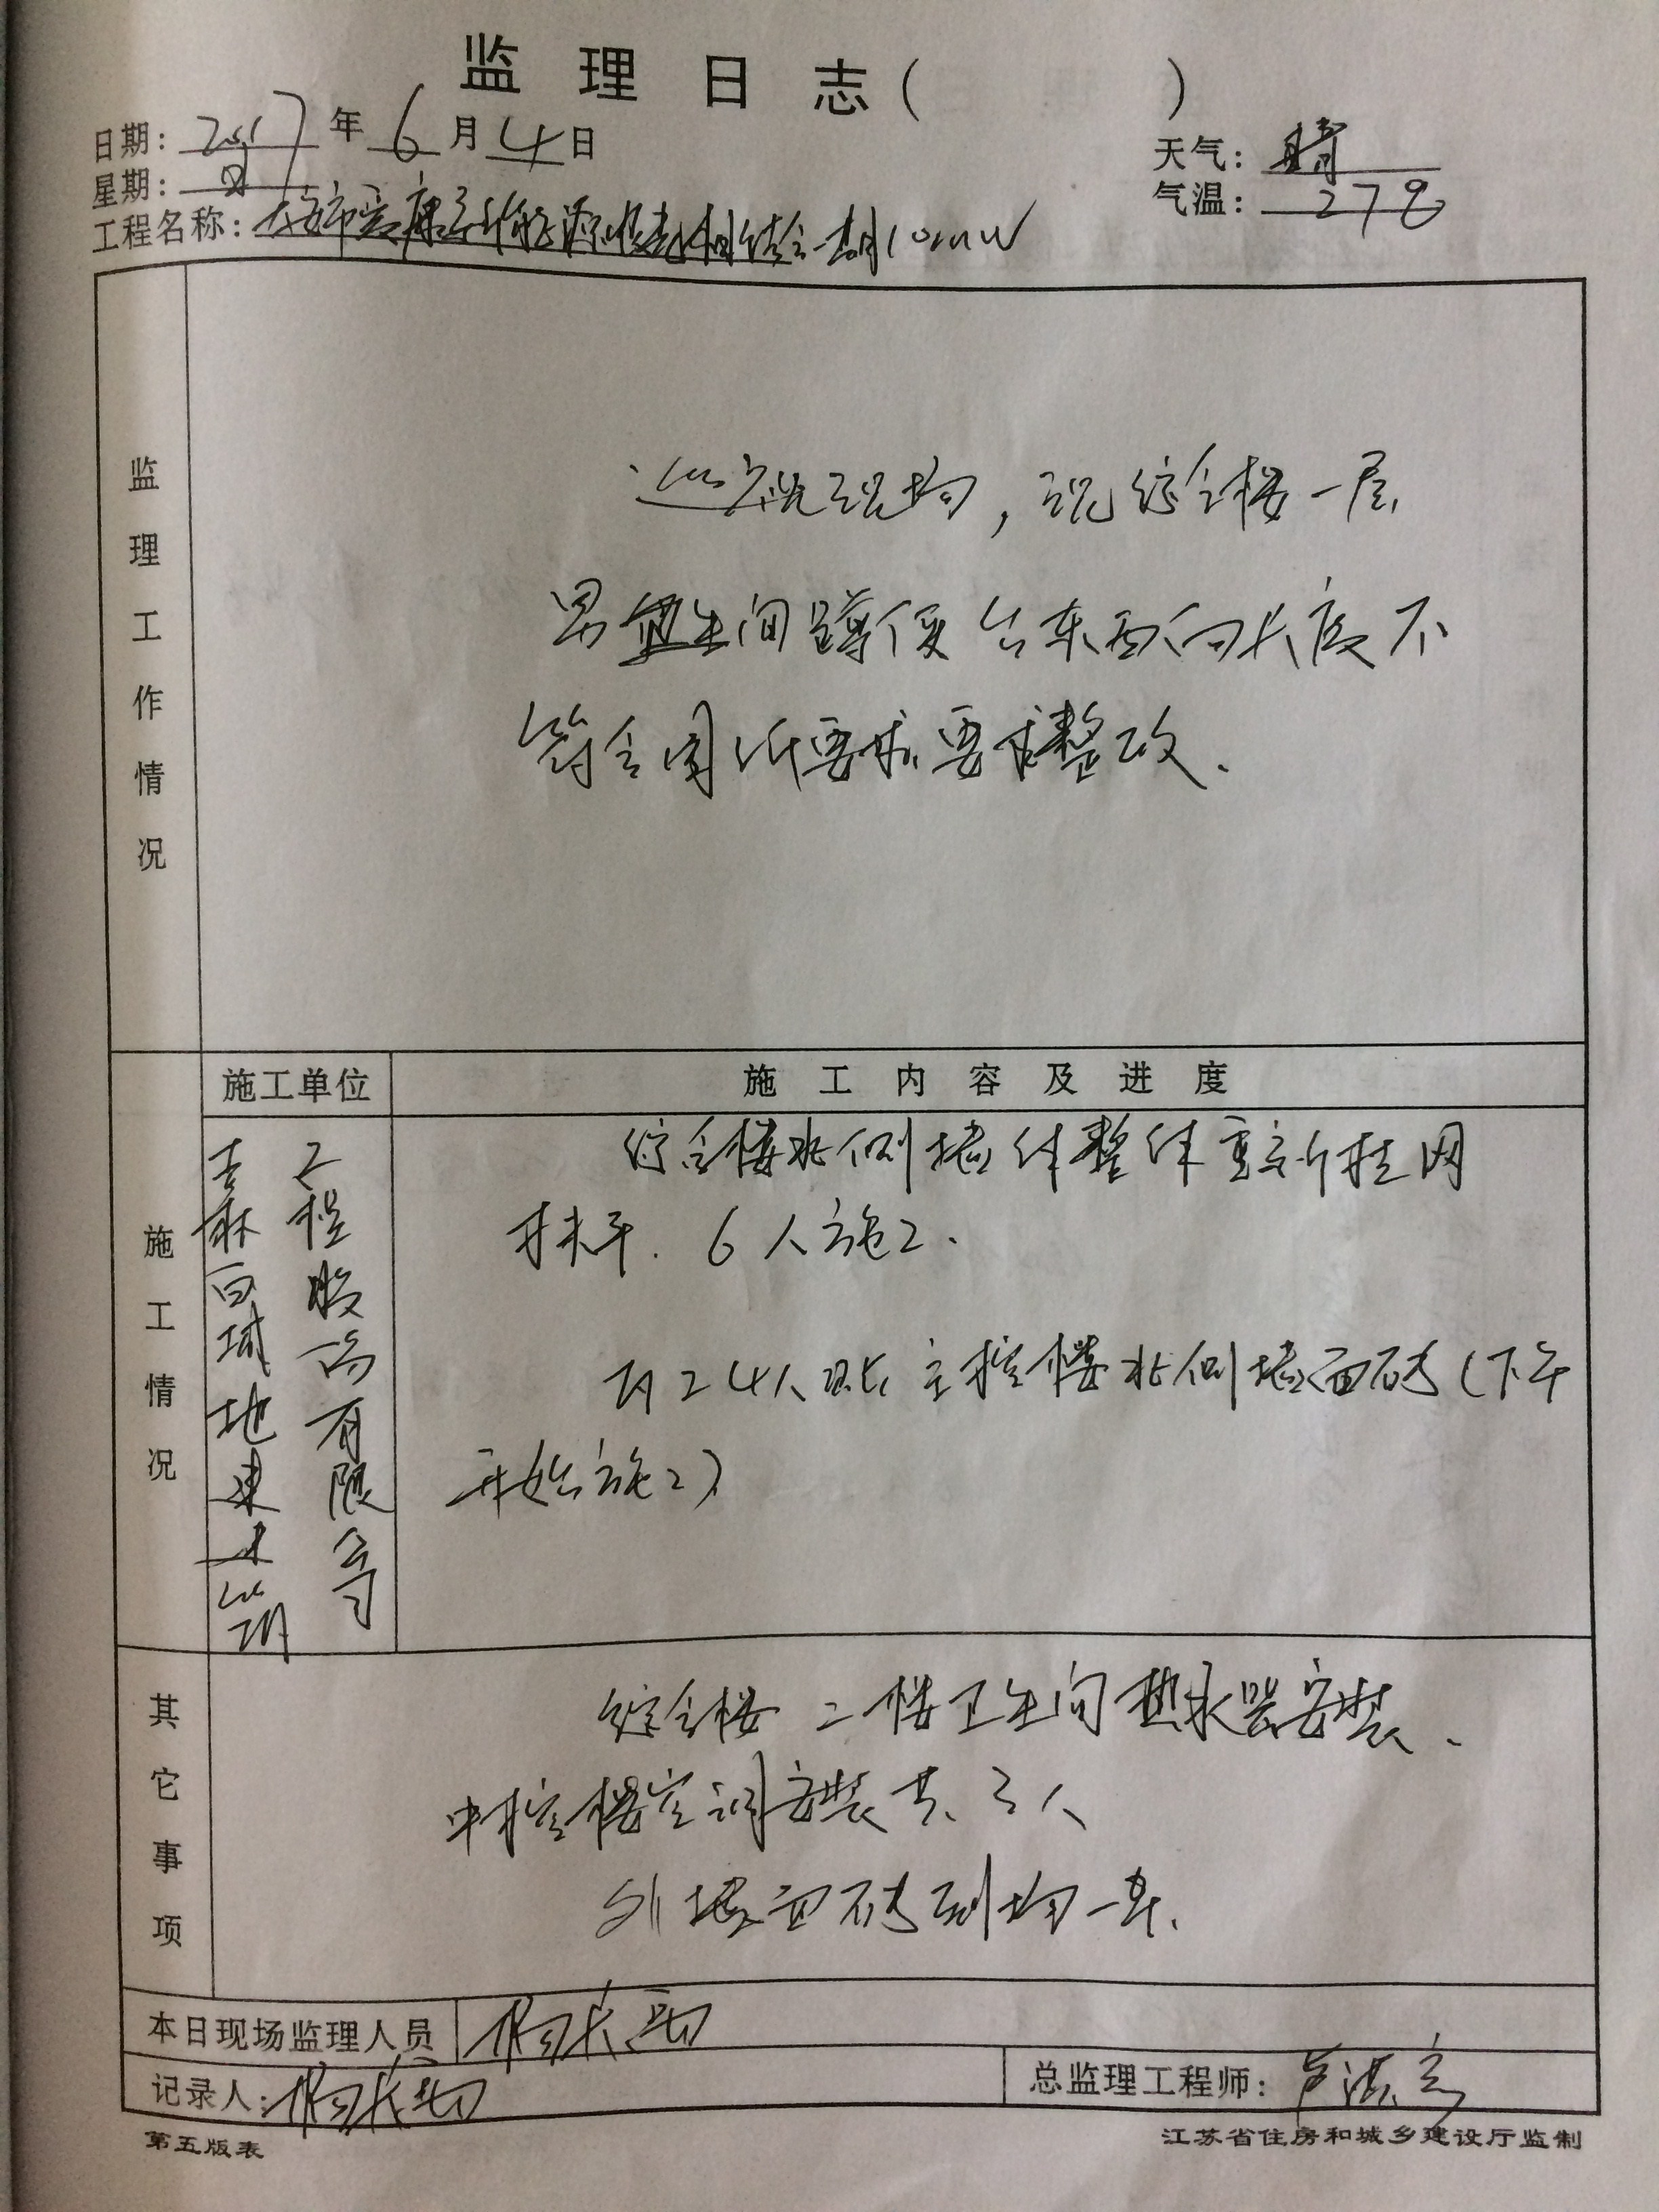 监理日志( )
日期: 2017年6月4日 天气: 晴
星期: 日 气温: 27℃
工程名称: 大安市爱康 一期10MW
监理工作情况
巡视现场,现综合楼一层
男卫生间蹲便台东西向长度不
符合图纸要求要求整改.
施工单位 施工内容及进度
施工情况
吉林百城地建建筑
工程股份有限公司
综合楼北侧墙体整体重新挂网
抹平. 6人施工.
有24人贴主控楼北侧墙面砖(下午
开始施工)
其它事项
综合楼二楼卫生间热水器安装、
中控楼空调安装共3人
外墙面砖到场一车.
本日现场监理人员 杨长
记录人: 杨长 总监理工程师: 卢
第五版表 江苏省住房和城乡建设厅监制